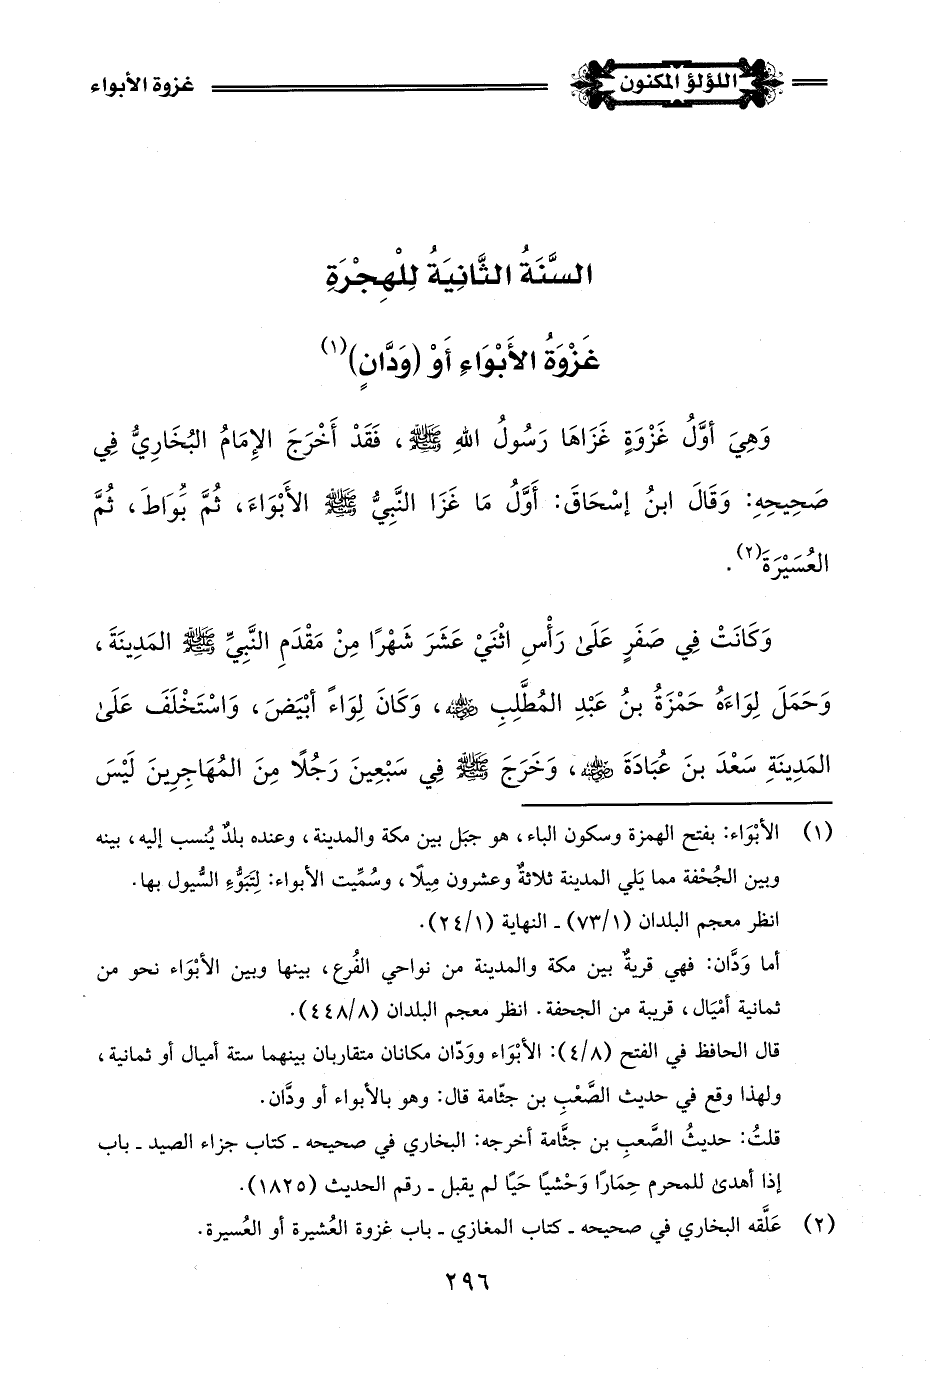 اللؤلؤ المكنون
غزوة الأبواء
السَّنَةُ الثَّانِيَةُ لِلْهِجْرَةِ
غَزْوَةُ الأَبْوَاءِ أَوْ (وَدَّانٍ)(١)
وَهِيَ أَوَّلُ غَزْوَةٍ غَزَاهَا رَسُولُ اللهِ ﷺ، فَقَدْ أَخْرَجَ الإِمَامُ البُخَارِيُّ فِي
صَحِيحِهِ: وَقَالَ ابنُ إسْحَاقَ: أَوَّلُ مَا غَزَا النَّبِيُّ ﷺ الأَبْوَاءَ، ثُمَّ بُوَاطَ، ثُمَّ
العُسَيْرَةَ(٢).
وَكَانَتْ فِي صَفَرٍ عَلَىٰ رَأْسِ اثْنَيْ عَشَرَ شَهْرًا مِنْ مَقْدَمِ النَّبِيِّ ﷺ المَدِينَةَ،
وَحَمَلَ لِوَاءَهُ حَمْزَةُ بنُ عَبْدِ المُطَّلِبِ رضي الله عنه، وَكَانَ لِوَاءً أَبْيَضَ، وَاسْتَخْلَفَ عَلَىٰ
المَدِينَةِ سَعْدَ بنَ عُبَادَةَ رضي الله عنه، وَخَرَجَ ﷺ فِي سَبْعِينَ رَجُلًا مِنَ المُهَاجِرِينَ لَيْسَ
(١) الأَبْوَاء: بفتح الهمزة وسكون الباء، هو جبَل بين مكة والمدينة، وعنده بلدٌ يُنسب إليه، بينه
وبين الجُحْفة مما يَلي المدينة ثلاثةٌ وعشرون مِيلًا، وسُمِّيت الأبواء: لِتَبَوُّءِ السُّيول بها.
انظر معجم البلدان (٧٣/١) ـ النهاية (٢٤/١).
أما وَدَّان: فهي قريةٌ بين مكة والمدينة من نواحي الفُرع، بينها وبين الأَبْوَاء نحو من
ثمانية أمْيَال، قريبة من الجحفة. انظر معجم البلدان (٤٤٨/٨).
قال الحافظ في الفتح (٤/٨): الأَبْوَاء ووَدّان مكانان متقاربان بينهما ستة أميال أو ثمانية،
ولهذا وقع في حديث الصَّعْبِ بن جثّامة قال: وهو بالأبواء أو ودَّان.
قلتُ: حديثُ الصَّعبِ بن جثَّامة أخرجه: البخاري في صحيحه ـ كتاب جزاء الصيد ـ باب
إذا أهدىٰ للمحرم حِمَارًا وَحْشيًا حَيًا لم يقبل ـ رقم الحديث (١٨٢٥).
(٢) عَلَّقه البخاري في صحيحه ـ كتاب المغازي ـ باب غزوة العُشيرة أو العُسيرة.
٢٩٦